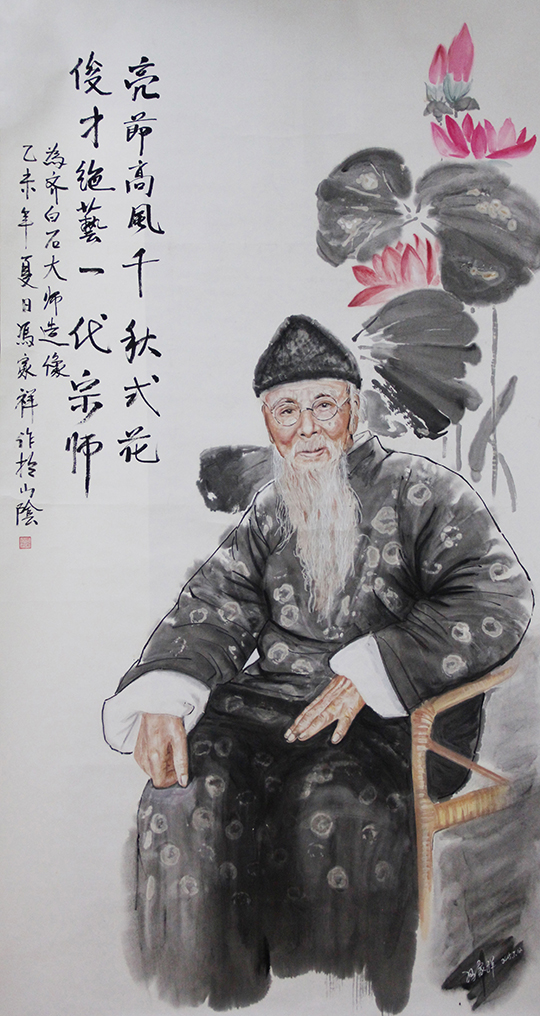 亮節高風千秋式范
俊才絶藝一代宗师
為齐白石大师造像
乙未年夏日馮家祥作於山陰
冯家祥